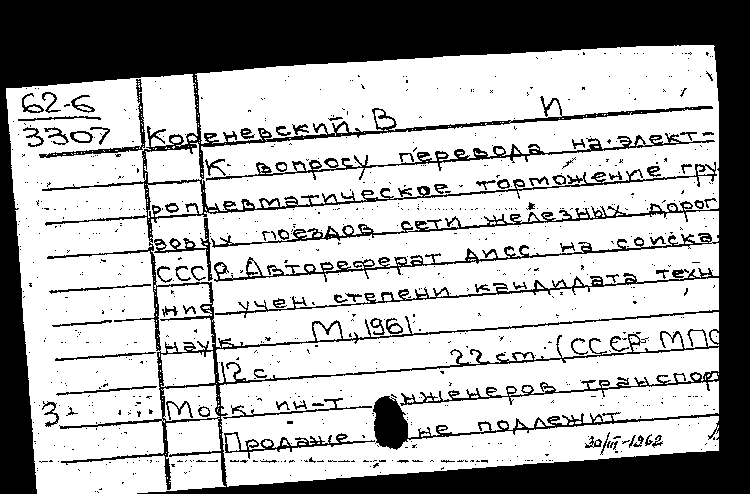 62-6 И
3307 Кореневский, В
К вопросу перевода на элект-
ропневматическое торможение гру
зовых поездов сети железных дорог
СССР. Автореферат дисс. на соиска
ние учен. степени кандидата техн
наук. М., 1961.
12 с. 22 cm. (СССР. МПС
Моск. ин-т инженеров транспорт
Продаже не подлежит
30/III-1962